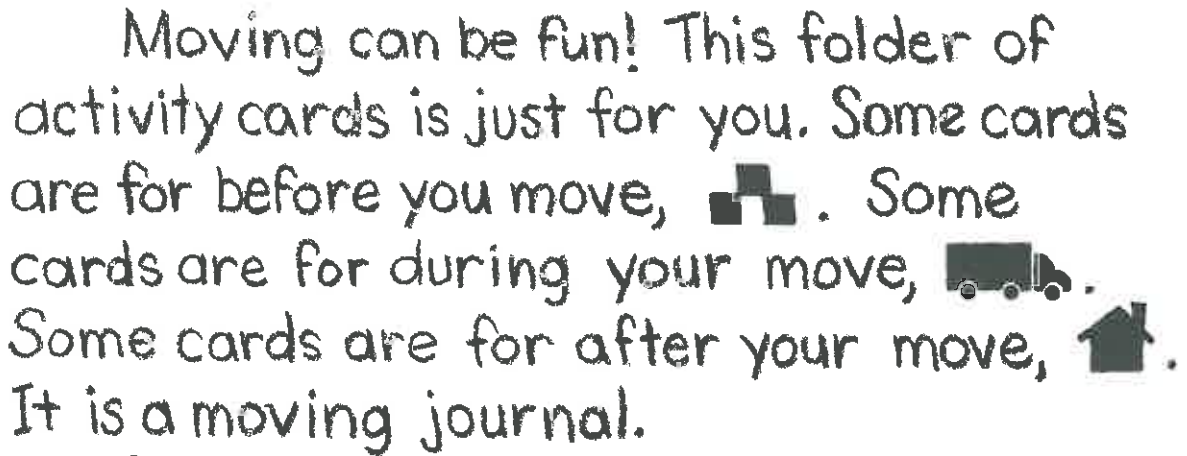 Moving can be fun! This folder of
activity cards is just for you. Some cards
are for before you move, . Some
cards are for during your move, .
Some cards are for after your move, .
It is a moving journal.